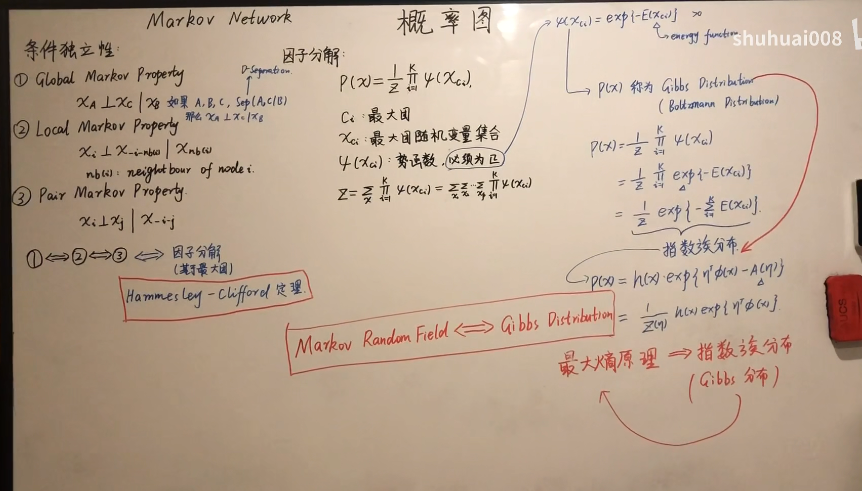 Markov Network
概率图
shuhuai008
条件独立性:
① Global Markov Property
D-Seperation
x_A ⊥ x_C | x_B 如果 A, B, C, Sep(A, C|B)
那么 x_A ⊥ x_C | x_B
② Local Markov Property
x_i ⊥ x_{-i-nb(i)} | x_{nb(i)}
nb(i): neighbour of node i.
③ Pair Markov Property.
x_i ⊥ x_j | x_{-i-j}
① ⟺ ② ⟺ ③ ⟺ 因子分解
(基于最大团)
Hammesley-Clifford 定理.
因子分解:
P(x) = 1/Z ∏_{i=1}^K ψ(x_{Ci}),
Ci: 最大团
x_{Ci}: 最大团随机变量集合
ψ(x_{Ci}): 势函数, 必须为正
Z = Σ_x ∏_{i=1}^K ψ(x_{Ci}) = Σ_{x1} Σ_{x2} ... Σ_{xp} ∏_{i=1}^K ψ(x_{Ci})
ψ(x_{Ci}) = exp{-E(x_{Ci})} >0
energy function
P(x) 称为 Gibbs Distribution
(Boltzmann Distribution)
P(x) = 1/Z ∏_{i=1}^K ψ(x_{Ci})
= 1/Z ∏_{i=1}^K exp{-E(x_{Ci})}
= 1/Z exp{-Σ_{i=1}^K E(x_{Ci})}.
指数族分布
P(x) = h(x)·exp{η^T φ(x) - A(η)}
= 1/Z(η) h(x) exp{η^T φ(x)}.
Markov Random Field ⟺ Gibbs Distribution
最大熵原理 ⇒ 指数族分布
(Gibbs 分布)